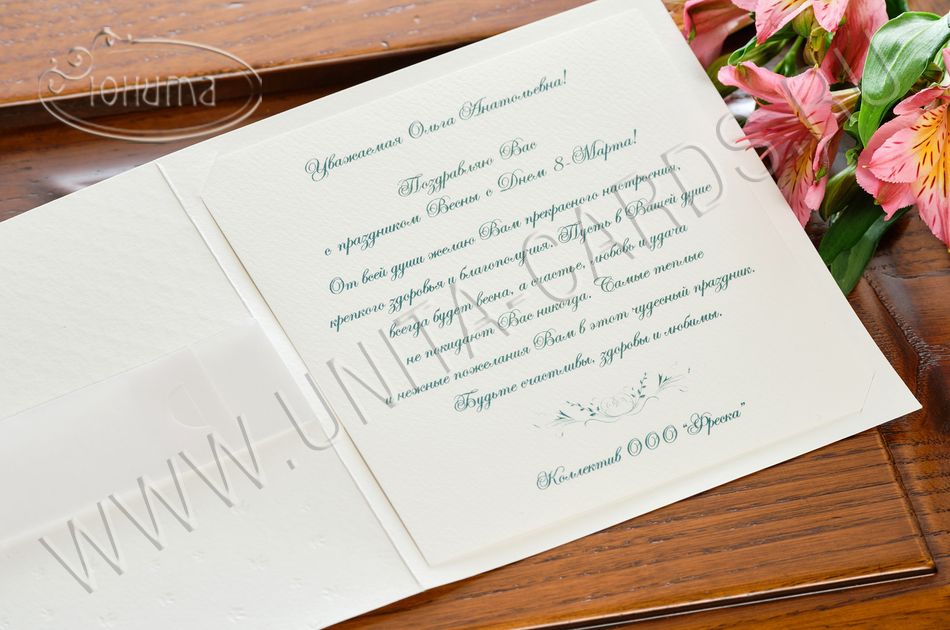 Юнита
Уважаемая Ольга Анатольевна!
Поздравляю Вас
с праздником Весны с Днем 8-Марта!
От всей души желаю Вам прекрасного настроения,
крепкого здоровья и благополучия. Пусть в Вашей душе
всегда будет весна, а счастье, любовь и удача
не покидают Вас никогда. Самые теплые
и нежные пожелания Вам в этот чудесный праздник.
Будьте счастливы, здоровы и любимы.
Коллектив ООО "Фреска"
WWW.UNITA-CARDS.RU